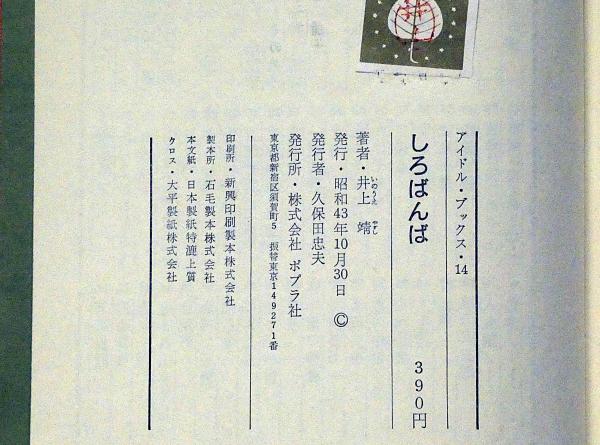 アイドル・ブックス・14
しろばんば 390円
著者・井上 靖
いのうえ やすし
発行・昭和43年10月30日 ©
発行者・久保田忠夫
発行所・株式会社 ポプラ社
東京都新宿区須賀町5 振替東京149271番
印刷所・新興印刷製本株式会社
製本所・石毛製本株式会社
本文紙・日本製紙特漉上質
クロス・大平製紙株式会社